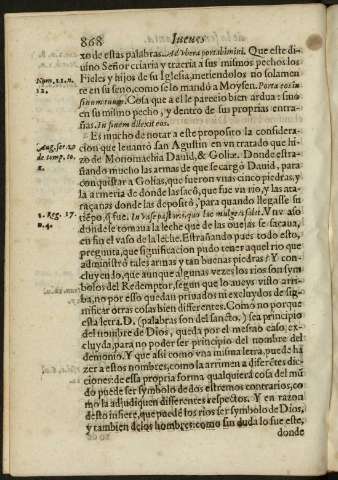 868 Iueues
xo de estas palabras. Ad vbera portabimini. Que este di-
uino Señor criaria y traeria a sus mismos pechos los
Fieles y hijos de su Iglesia, metiendolos no solamen
Num. 11. n.
12.
te en su seno, como se lo mandó a Moysen. Porta eos in
sinu tuo. Cosa que a el le parecio bien ardua: sino
en su mismo pecho, y dentro de sus proprias entra-
ñas. In finem dilexit eos.
Es mucho de notar a este proposito la considera-
Aug. ser. 20
de temp. to.
cion que leuantò san Agustin en vn tratado que hi-
zo de Monomachia Dauid, & Goliæ. Donde estra-
ñando mucho las armas de que se cargò Dauid, para
conquistar a Golias, que fueron vnas cinco piedras, y la
la armeria de donde las sacò, que fue vn rio, y las ata-
raçanas donde las depositò, para quando llegasse su
1. Reg. 17.
n. 4.
tiẽpo, q̃ fue. In vase pastoris, quo lac mulgere solet. Vn vaso
donde se tomaua la leche que de las ouejas se sacaua,
en fin el vaso de la leche. Estrañando pues todo esto,
pregunta, que significacion pudo tener aquel rio que
administrò tales armas y tan buenas piedras? Y con-
cluyendo, que aunque algunas vezes los rios son sym-
bolos del Redemptor, segun que lo aueys visto arri-
ba, no por esso quedan priuados ni excluydos de sig-
nificar otras cosas bien differentes. Como no porque
esta letra. D. (palabras son del sancto,) sea principio
del nombre de Dios, queda por el mesmo caso, ex-
cluyda, para no poder ser principio del nombre del
demonio. Y que assi como vna misma letra, puede ha
zer a estos nombres, como la arrimen a differẽtes dic-
ciones: de essa propria forma qualquiera cosa del mũ
do puede ser symbolo de dos estremos contrarios, co
mo la adjudiquen differentes respectos. Y en razon
desto infiere, que puedẽ los rios ser symbolo de Dios,
y tambien de los hombres: como sin duda lo fue este,
donde